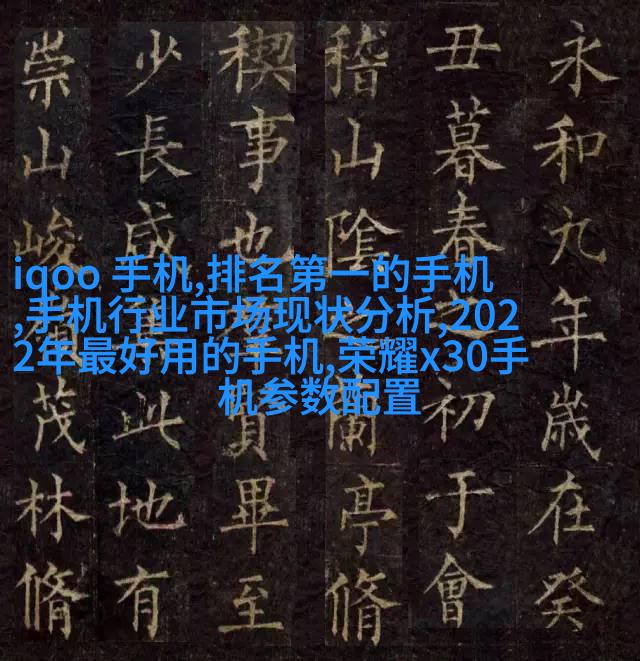 永和九年歲在癸
丑暮春之初于會
稽山陰蘭亭脩
稧事也賢畢至
少長咸集此地有
崇山峻嶺茂林脩
iqoo 手机,排名第一的手机
,手机行业市场现状分析,202
2年最好用的手机,荣耀x30手
机参数配置